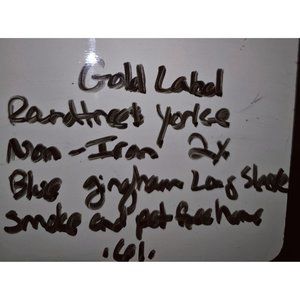 Gold Label
Roundtree Yorke
Non-Iron 2x
Blue gingham Long Sleeve
smoke and pet free home
.61.